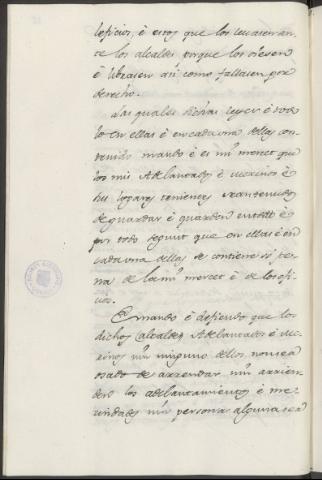 leficios, é estos que los levasen an-
te los alcaldes porque los oiesen
é librasen asi como fallasen por
derecho.
Las quales dichas leyes é todo
lo en ellas é en cada una dellas con-
tenido mando é es mi merced que
los mis Adelantados é merinos é
sus logares tenientes sean tenudos
de guardar é guarden en todo é
por todo segunt que en ellas é en
cada una dellas se contiene so pe-
na de la mi merced é de los ofi-
cios.
E mando é defiendo que los
dichos Alcaldes Adelantados é me-
rinos nin ninguno dellos non sea
osado de arrendar nin arrien-
den los adelantamientos é me-
rindades nin personas alguna sea